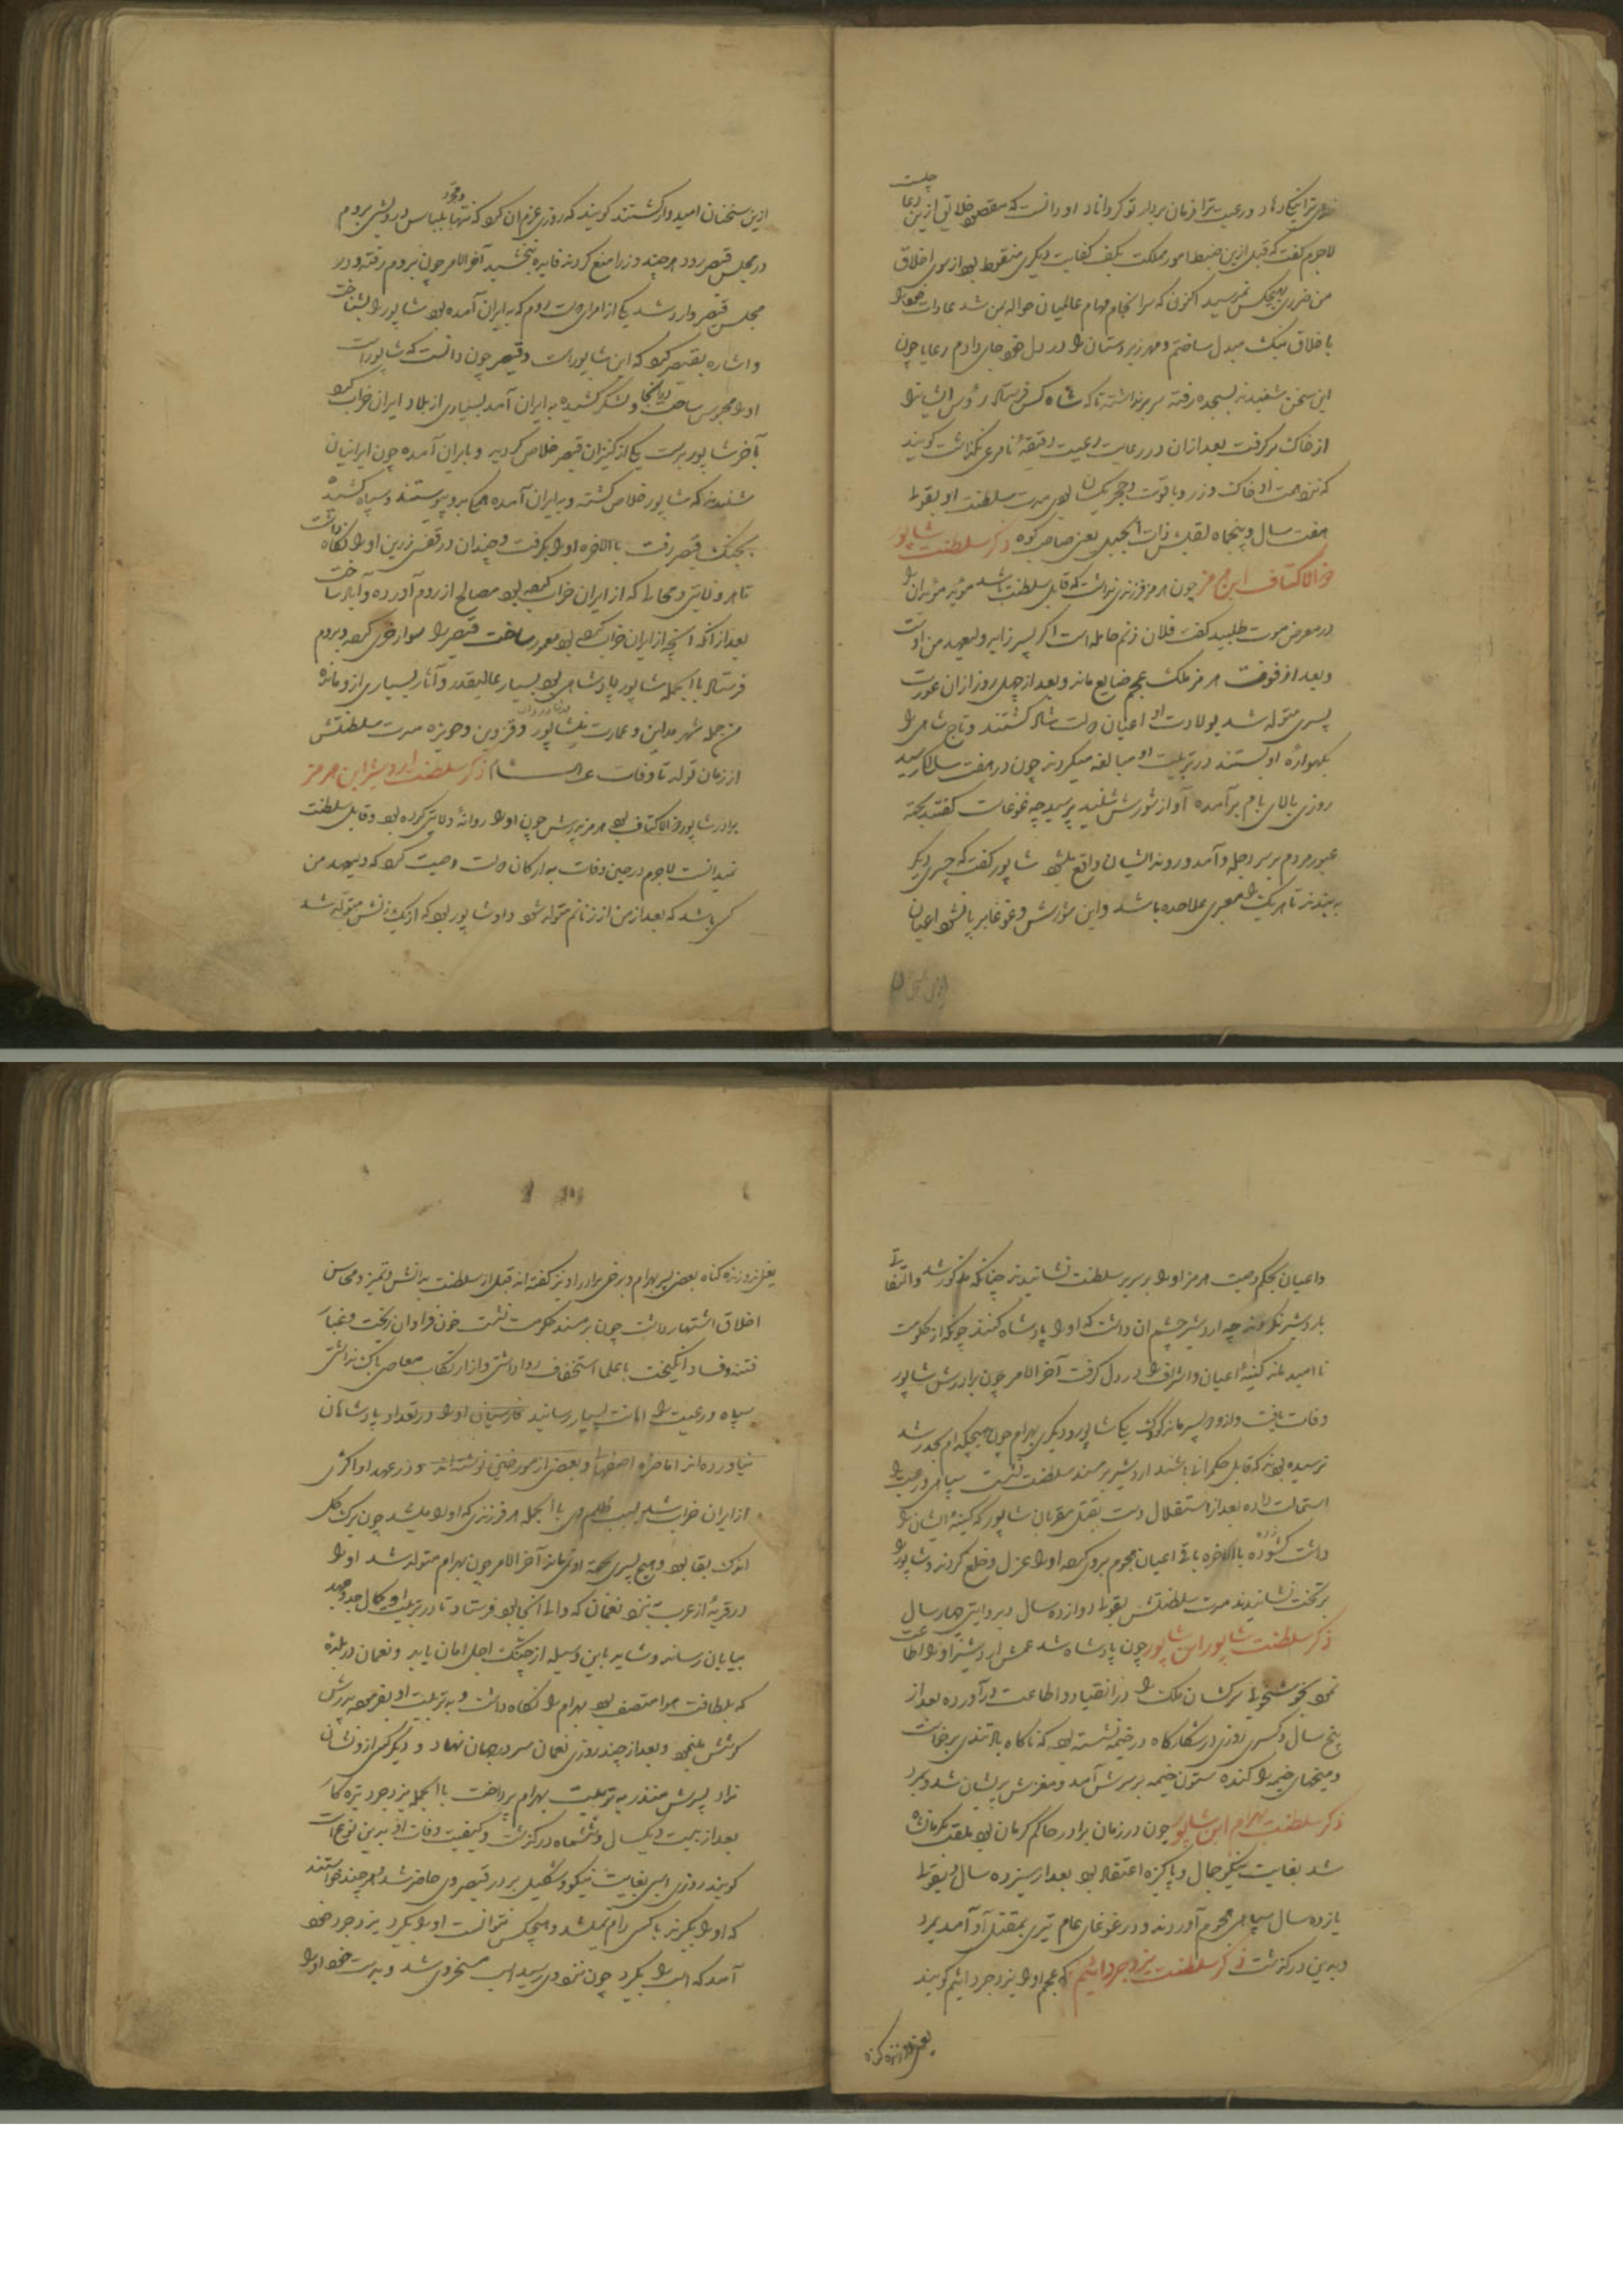 ترا نیک دهاد و رعیت ترا فرمان بردار تو کرداناد او دانست که مقصود خلایق ازین دعا چیست
لاجرم گفت که قبل ازین ضبط امور مملکت بکف کفایت دیکری منقوط بود از سوی اخلاق
من ضرری بهیچکس نمیرسید اکنون که سرانجام مهام عالمیان حواله بمن شد عادات
باخلاق نیک مبدل ساختم و مهر زیردستان را در دل خود جای دادم رعایا چون
این سخن شنیدند بسجده رفته سر برنداشتند تا که شاه کس فرستاد رؤس ایشانرا
از خاک برگرفت بعد ازان در رعایت رعیت دقیقهٔ نامرعی نگذاشت گویند
که نزد همت او خاک و زر و یاقوت و حجر یکسان بود مدت سلطنت او بقولی
هفت سال و پنجماه لقبش ذات الجبل یعنی صاحب کوه ذکر سلطنت شاپور
ذو الاکتاف ابن هرمز چون هرمز فرزندی نداشت که قابل سلطنت باشد موبد موبدان را
در معرض موت طلبید گفت فلان زنم حامله است اگر پسر زاید ولیعهد من اوست
و بعد از فوت هرمز ملک عجم ضایع ماند و بعد از چهل روز ازان عورت
پسری متولد شد بولادت او اعیان دولت شاد گشتند و تاج شاهی را
بکهوارهٔ او بستند در تربیت او مبالغه میکردند چون در هفت سالگی رسید
روزی بالای بام برآمده آواز شورش شنید پرسید چه غوغاست گفتند بجهة
عبور مردم بر سر دجله و آمد و رو ایشان واقع میشود شاپور گفت که جسری دیگر
به بندند تا هر یک را معبری علاحده باشد و این شورش و غوغا برپا نشود اعیان
ازین سخنان
ازین سخنان امیدوار گشتند گویند که روزی عزم ان کرد که تنها بلباس درویشی بروم
در مجلس قیصر رود هر چند وزرا منع کردند فایده نبخشید آخر الامر چون بروم رفته و در
مجلس قیصر وارد شد یکی از امرای دولت روم که بایران آمده بود شاپور را بشناخت
و اشاره بقیصر کرد که این شاپور است و قیصر چون دانست که شاپور است
او را محبوس ساخت و لشکر کشیده به ایران آمد بسیاری از بلاد ایران خراب کرد
بآخر شاپور بدست یکی از کنیزان قیصر خلاص گردید و بایران آمده چون ایرانیان
شنیدند که شاپور خلاص گشته و بایران آمده همه برو پیوستند و سپاه کشیده
بجنک قیصر رفت بالاخره او را بگرفت و چندان در قفس زرین او را نگاه داشت
تا هر ولایتی و محالی که از ایران خراب کرده بود مصالح از روم آورده و آباد ساخت
بعد ازانکه آنچه از ایران خراب کرده بود معمور ساخت قیصر را سوار خری کرده و بروم
فرستاد با الجمله شاپور پادشاهی بود بسیار عالیقدر و آثار بسیاری ازو مانده
من جمله شهر مداین و عمارت نیشاپور و قزوین و حویزه مدت سلطنتش
از زمان تولد تا وفات ذکر سلطنت اردشیر ابن هرمز
برادر شاپور ذو الاکتاف بود هرمز پدرش چون او را روانهٔ ولایتی کرده بود و قابل سلطنت
نمیدانست لاجرم در حین وفات به ارکان دولت وصیت کرد که ولیعهد من
کسی باشد که بعد از من از زنانم متولد شود و او شاپور بود که از یک زنش متولد شد
و اعیان بحکم وصیت هرمز او را بر سریر سلطنت نشانیدند چنانکه مذکور شد و التفاتی
باردشیر نکردند چه اردشیر چشم ان داشت که او را پادشاه کنند چونکه از حکومت
نا امید ماند کینهٔ اعیان و اشراف را در دل گرفت آخر الامر چون برادرش شاپور
وفات یافت و ازو دو پسر ماند کوچک یکی شاپور و دیگری بهرام چون هیچکدام بحد رشد
نرسیده بودند که قابل حکمرانی باشند اردشیر بر مسند سلطنت نشست سپاهی و رعیت را
استمالت داده بعد از استقلال دست بقتل مقربان شاپور که کینهٔ ایشان را
داشت گشوده بالاخره باقی اعیان هجوم برو کرده او را عزل و خلع کردند و شاپور را
بر تخت نشانیدند مدت سلطنتش بقولی دوازده سال و بروایتی چهار سال
ذکر سلطنت شاپور ابن شاپور چون پادشاه شد عمش اردشیر او را اطاعت
نمود سرکشان ملک را در انقیاد و اطاعت درآورده بعد از
پنج سال و کسری روزی در شکارگاه در خیمه نشسته بود که ناگاه باد تندی برخاست
و میخهای خیمه را کنده ستون خیمه بر سرش آمد و مغزش پریشان شد و بمرد
ذکر سلطنت بهرام ابن شاپور چون در زمان برادر حاکم کرمان بود ملقب بکرمانشاه
شد بغایت نیکو جمال و پاکیزه اعتقاد بود بعد از سیزده سال و بقولی
یازده سال سپاهی هجوم آوردند و در غوغای عام تیری بمقتل او آمد بمرد
و بدین درگذشت ذکر سلطنت یزدجرد اثیم که عجم او را یزدجرد اثیم گویند
یعنی بزه کناه
یعنی بزه کناه بعضی پسر بهرام و برخی برادر او نیز گفته اند قبل از سلطنت بدانش و تمیز و محاسن
اخلاق اشتهار داشت چون بر مسند حکومت نشست خون فراوان بریخت و غبار
فتنه و فساد انگیخت با علما استخفاف روا داشتی و از ارتکاب معاصی باک نداشتی
سپاه و رعیت را اهانت بسیار رسانید فارسیان او را در تعداد پادشاهان
نیاورده اند اما حمزه اصفهانی و بعضی از مورخین نوشته اند و در عهد او اکثری
از ایران خراب شد بسبب ظلم وی با الجمله هر فرزندی که او را میشد چون برگ گل
اندک بقا بود و هیچ پسری بجهة او نمی ماند آخر الامر چون بهرام متولد شد او را
در قریهٔ از عرب نزد نعمان که والی آنجا بود فرستاد تا در تربیت او کمال جد و جهد
بپایان رساند و شاید باین وسیله از چنگ اجل امان یابد و نعمان در بلده
که بلطافت هوا متصف بود بهرام را نگاه داشت و به تربیت او بفرموده پدرش
کوشش مینمود و بعد از چند روزی نعمان سر در جهان نهاد و دیگر کس ازو نشان
نداد پسرش منذر به تربیت بهرام پرداخت با الجمله یزدجرد بزه کار
بعد از بیست و یکسال و ششماه درگذشت و کیفیت وفات او بدین نوع است
گویند روزی اسبی بغایت نیکو و شکیل بر در قیصر وی حاضر شد هر چند خواستند
که او را بگیرند با کسی رام نمیشد و هیچکس نتوانست او را بگیرد یزدجرد خود
آمد که اسب را بگیرد چون نزد وی رسید اسب مسخر وی شد و بدست خود او را